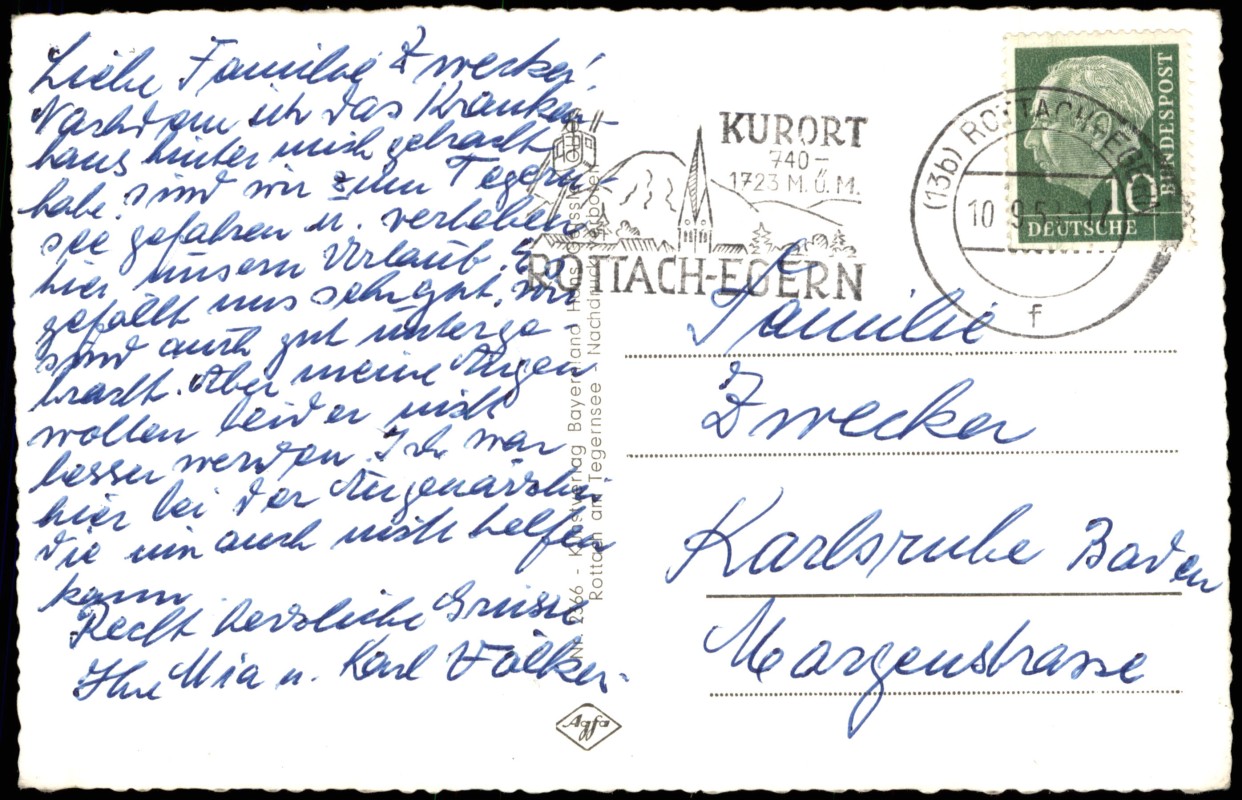 Liebe Familie Zwecker!
Nachdem ich das Kranken-
haus hinter mich gebracht
habe sind wir zum Tegern
see gefahren u. verleben
hier unsern Urlaub. Es
gefällt uns sehr gut, wir
sind auch gut unterge
bracht. Aber meine Augen
wollen leider nicht
besser werden. Ich war
hier bei der Augenärztin
die mir auch nicht helfen
kann
Recht herzliche Grüsse
Ihre Mia u. Karl Völker.
Nr. 2366 - Kunstverlag Bayerland Hans
Rottach am Tegernsee - Nachdruck
Agfa
KURORT
740-
1723 M.Ü.M.
ROTTACH-EGERN
(13b) ROTTACH-EGERN
10.9.5
f
10
DEUTSCHE
BUNDESPOST
Familie
Zwecker
Karlsruhe Baden
Morgenstrasse